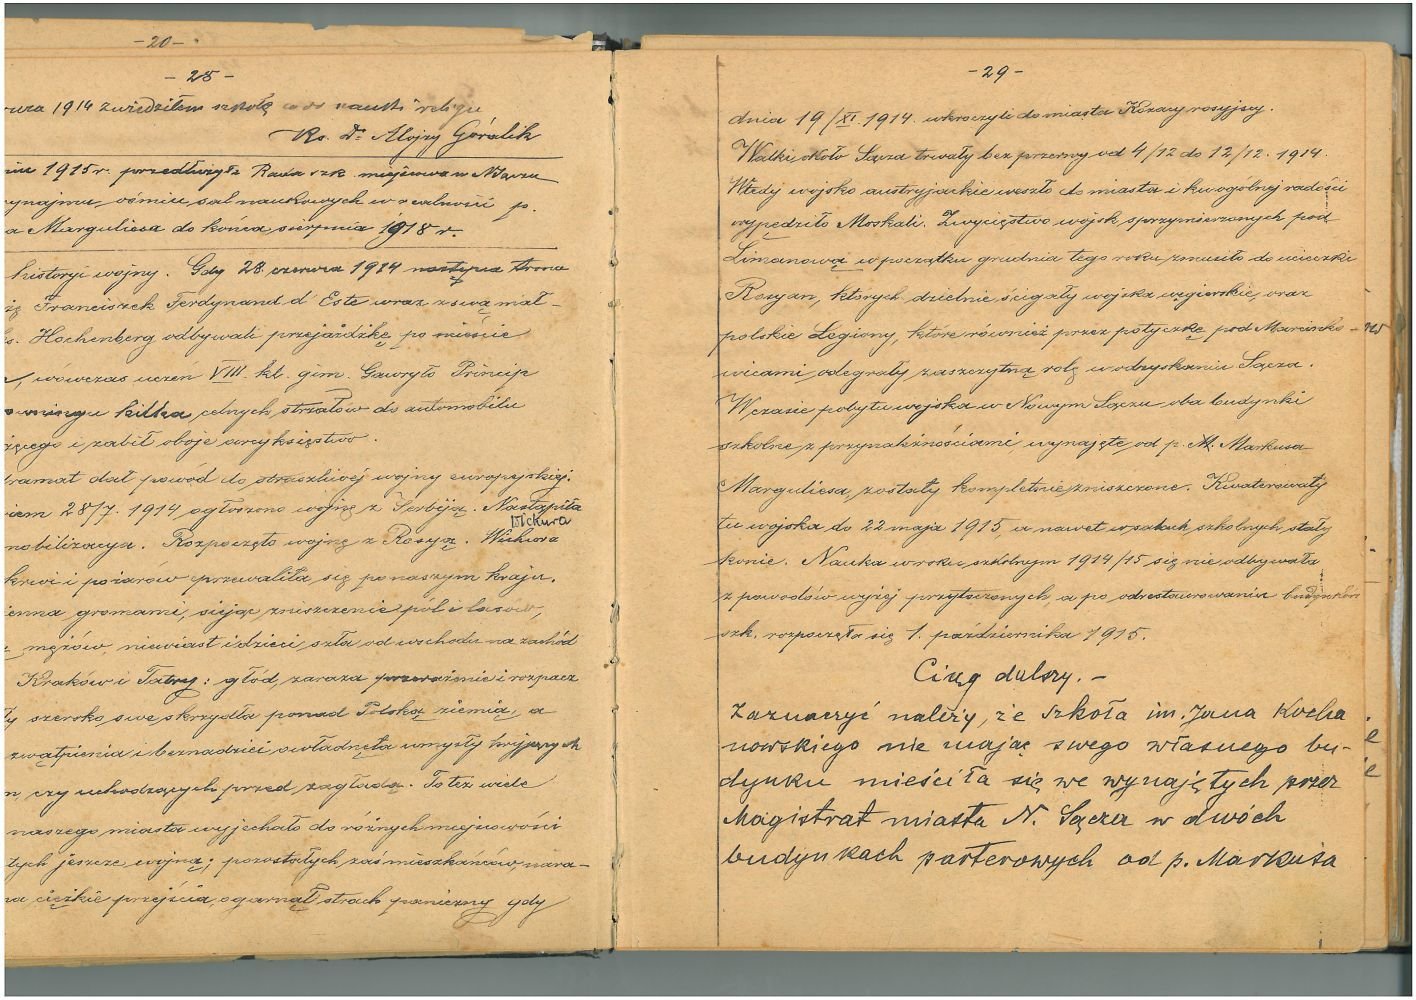 -20-
- 25 -
1914 zwiedziłem szkołę nauki religii
Ks. Dr Alojzy Góralik
1915 r. przedłużyła Rada szk. miejscowa w N. Sączu
wynajmu ośmiu sal naukowych w realności p.
a Marguliesa do końca sierpnia 1918 r.
historyi wojny. Gdy 28. czerwca 1914 następca tronu
Franciszek Ferdynand d'Este wraz z swą mał-
Hochenberg odbywali przejażdżkę po mieście
wówczas uczeń VIII. kl. gim. Gawryło Princip
kilka celnych strzałów do automobilu
i zabił oboje arcyksięstwo.
dramat dał powód do straszliwej wojny europejskiej.
28/7. 1914 ogłoszono wojnę z Serbiją. Nastąpiła
Wichura
mobilizacya. Rozpoczęto wojnę z Rosyą. Wichura
krwi i pożarów przewaliła się po naszym kraju.
gromami, siejąc zniszczenie pól i lasów,
mężów, niewiast i dzieci szła od wschodu na zachód
Kraków i Tatry: głód, zaraza przerażenie i rozpacz
szeroko swe skrzydła ponad Polską ziemią, a
zwątpienia i beznadziei owładnęła umysły
czy uchodzących przed zagładą. To też wiele
naszego miasta wyjechało do różnych miejscowości
jeszcze wojną; pozostałych zaś mieszkańców, nara-
na ciężkie przejścia, ogarnął strach paniczny gdy
-29-
dnia 19/XI. 1914. wkroczyli do miasta Kozacy rosyjscy.
Walki około Sącza trwały bez przerwy od 4/12 do 12/12. 1914.
Wtedy wojsko austryjackie weszło do miasta i ku ogólnej radości
wypędziło Moskali. Zwycięstwo wojsk sprzymierzonych pod
Limanową w początku grudnia tego roku zmusiło do ucieczki
Rosyan, których dzielnie ścigały wojska węgierskie, oraz
polskie Legiony, które również przez potyczkę pod Marcinko-
wicami odegrały zaszczytną rolę w odzyskaniu Sącza.
W czasie pobytu wojska w Nowym Sączu oba budynki
szkolne z przynależnościami, wynajęte od p. M. Markusa
Marguliesa, zostały kompletnie zniszczone. Kwaterowały
tu wojska do 22 maja 1915, a nawet w salach szkolnych stały
konie. Nauka w roku szkolnym 1914/15 się nie odbywała
z powodów wyżej przytoczonych, a po odrestaurowaniu budynków
szk. rozpoczęła się 1. października 1915.
Ciąg dalszy. -
Zaznaczyć należy, że szkoła im. Jana Kocha
nowskiego nie mając swego własnego bu-
dynku mieściła się we wynajętych przez
Magistrat miasta N. Sącza w dwóch
budynkach parterowych od p. Markusa